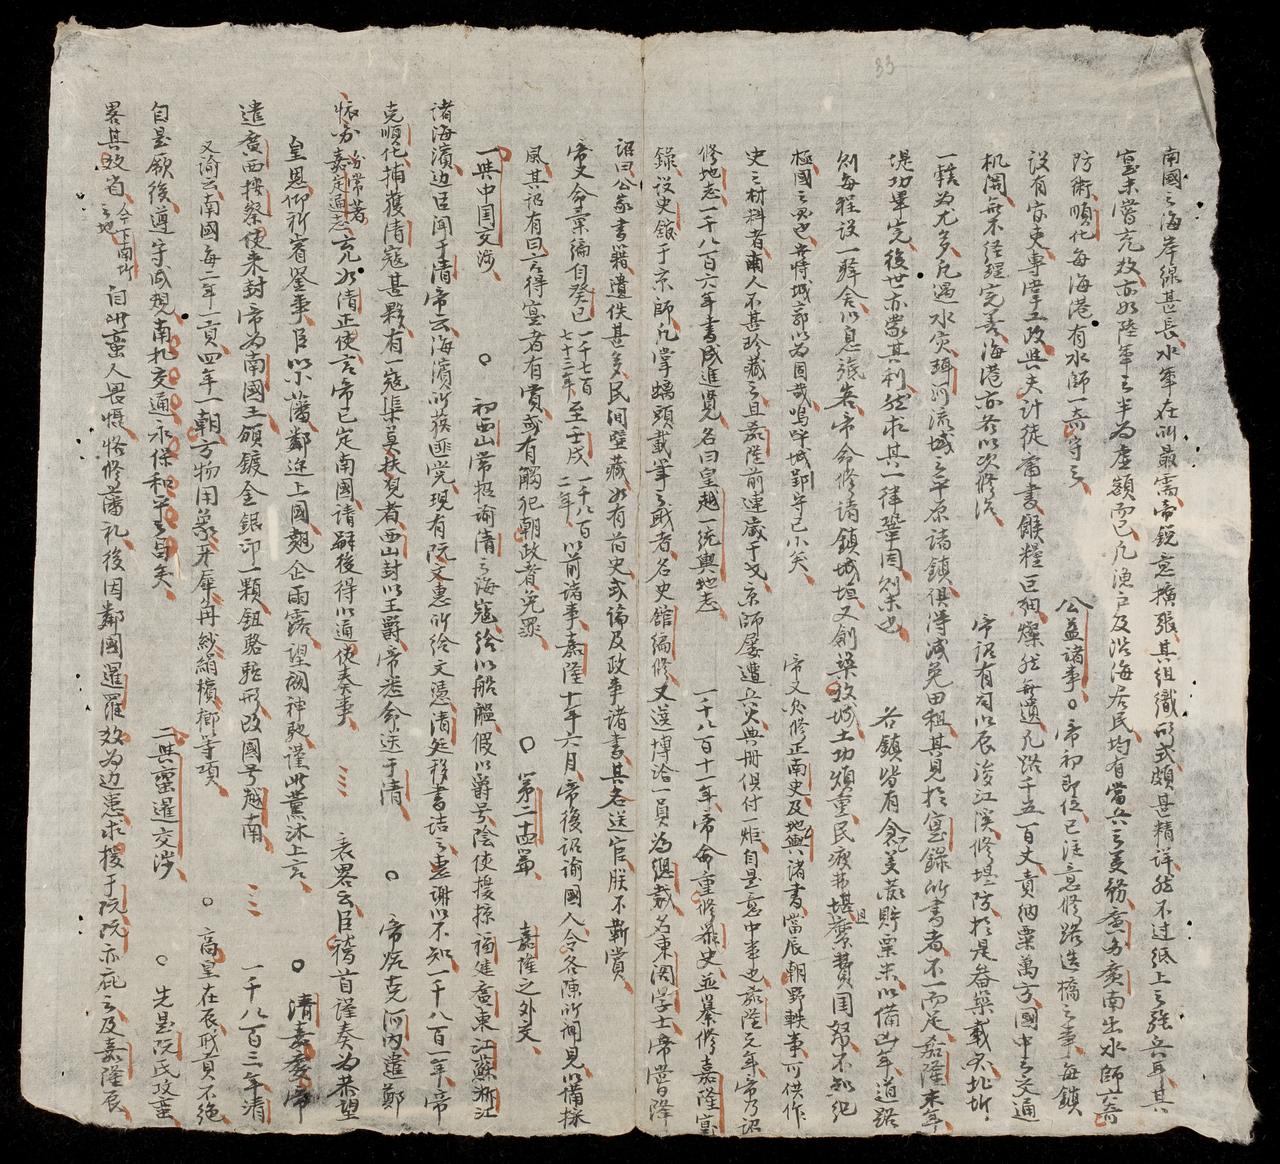 33
南國之海岸線甚長水軍在所最需帝銳意擴張其組織形式頗甚精詳然不过紙上之強兵耳其
寔未嘗充放亦如陸軍之半為虛額而已凡漁戸及沿海居民均有當兵之美務廣南出水師六奇
防術順化每海港有水師一奇守之 公益諸事○帝初即位已注意修路造橋之事每鎮
設有官吏專掌工政與夫計徒庸書餱糧巨細燦然無遺凡路千五百丈責納粟萬方國中之交通
机関無不経理完善海港亦各以次修濬 帝詔有司以辰浚江溪修堤防於是畚築載夫北圻
一轄為尤多凡遇水灾珥河流域之平原諸鎮俱得減免田租其見於寔錄所書者不一而足嘉隆末年
堤功畢完後世亦蒙其利然求其一律鞏固則未也 各鎮皆有倉以貯粟米以備凶年道路
則每程設一驛舍以息旅客帝命修諸鎮城垣又創築政城土功煩重民疲弗堪且縻費国帑不知纪
極國之要也若恃城郭以為固哉嗚呼城郭守已小矣 帝又欠修正南史及地輿諸書當辰朝野軼事可供作
史之材料者南人不甚珍藏之且嘉隆前連歲干戈京師屡遭兵火典冊俱付一炬自是意中事也嘉隆元年帝乃詔
修地志一千八百六年書成進覽名曰皇越一統輿地志 一千八百十一年帝命重修嚴史並纂修嘉隆寔
錄設史舘于京師凡掌螭頭載筆之职者名史舘編修又选博洽一員為總裁名東閣学士帝嘗降
詔曰公家書籍遺佚甚多民间壁藏如有前史或論及政事諸書其各送官朕不靳賞
帝又命彙編自癸巳一千七百七十三年至壬戌一千八百二年以前諸事嘉隆十年六月帝復詔諭國人令各陳所聞見以備採
風其詔有曰言得寔者有賞或有觸犯朝政者免罪 ○ 第二十四篇 嘉隆之外交
一與中国交涉 ○ 初西山常招諭清之海寇給以船艦假以爵号陰使擾掠福建廣東江蘇浙江
諸海濱边臣闻于清帝云海濱所獲匪党現有阮文惠所給文憑清廷移書诘之惠謝以不知一千八百一年帝
克順化捕獲清寇甚夥有一寇渠莫扶覌者西山封以王爵帝悉命送于清 ○ 帝旋克河内遣鄭
懷德著嘉定通志充如清正使言帝已定南國请嗣後得以通使奏事 表畧云臣稽首謹奏为恭望
皇恩仰祈睿鉴事臣以小藩鄰近上國翹企雨露望闕神馳谨此薰沐上言 ○ 清嘉慶帝
遣廣西按察使来封帝為南國王颁鍍金銀印一颗鈕駱駝形改國号越南 一千八百三年清
又谕云南國每二年一貢四年一朝方物用象牙犀角紗絹檳榔等項 ○ 高皇在辰職貢不绝
自是厥後遵守成規南北交通永保和平之旨矣 二與蛮暹交涉 ○ 先是阮氏攻蛮
畧其数省今下南圻之地自此蛮人畏慑恪修藩礼後因鄰國暹羅数为边患求援于阮阮亦庇之及嘉隆辰